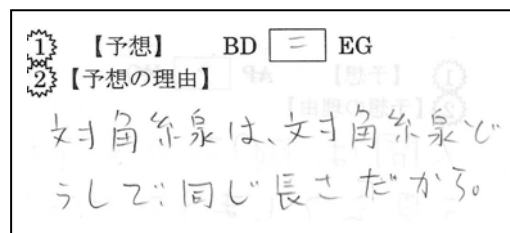 1 【予想】 BD = EG
2 【予想の理由】
対角線は、対角線ど
うしで同じ長さだから。